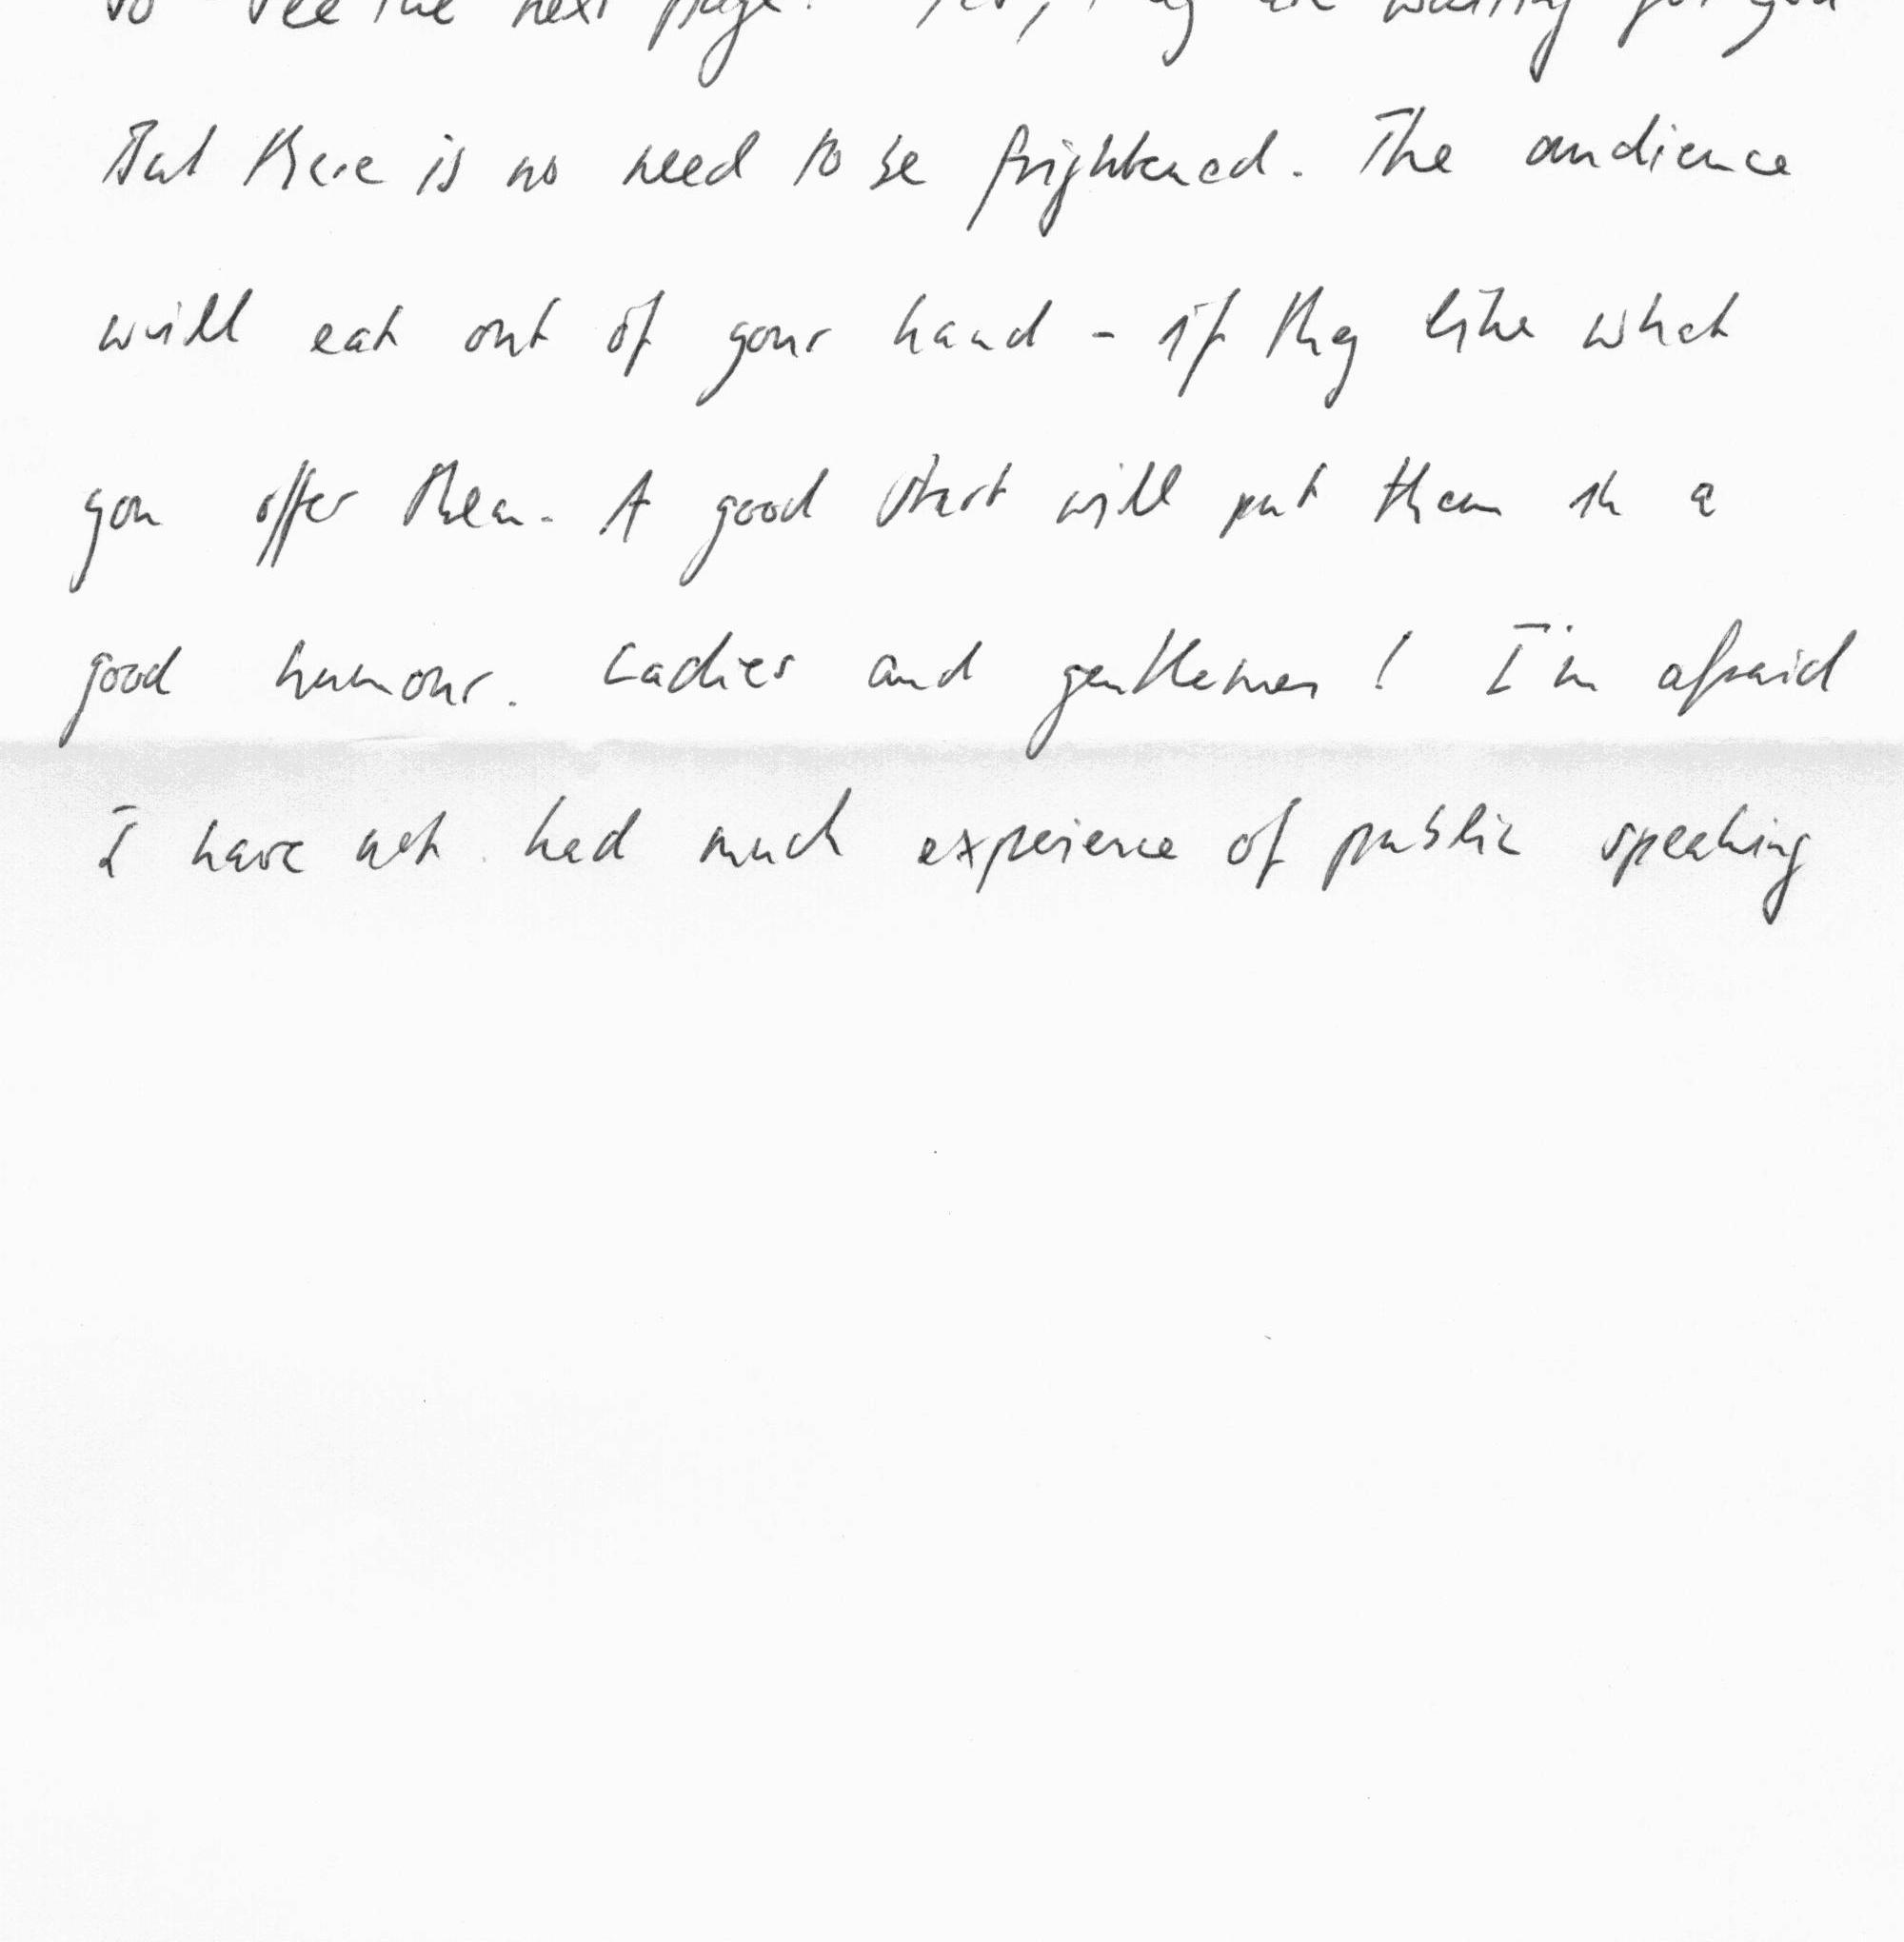 to see the next page. Yes, they are waiting for you
But there is no need to be frightened. The audience
will eat out of your hand - if they like what
you offer them. A good start will put them in a
good humour. Ladies and gentlemen! I'm afraid
I have not had much experience of public speaking